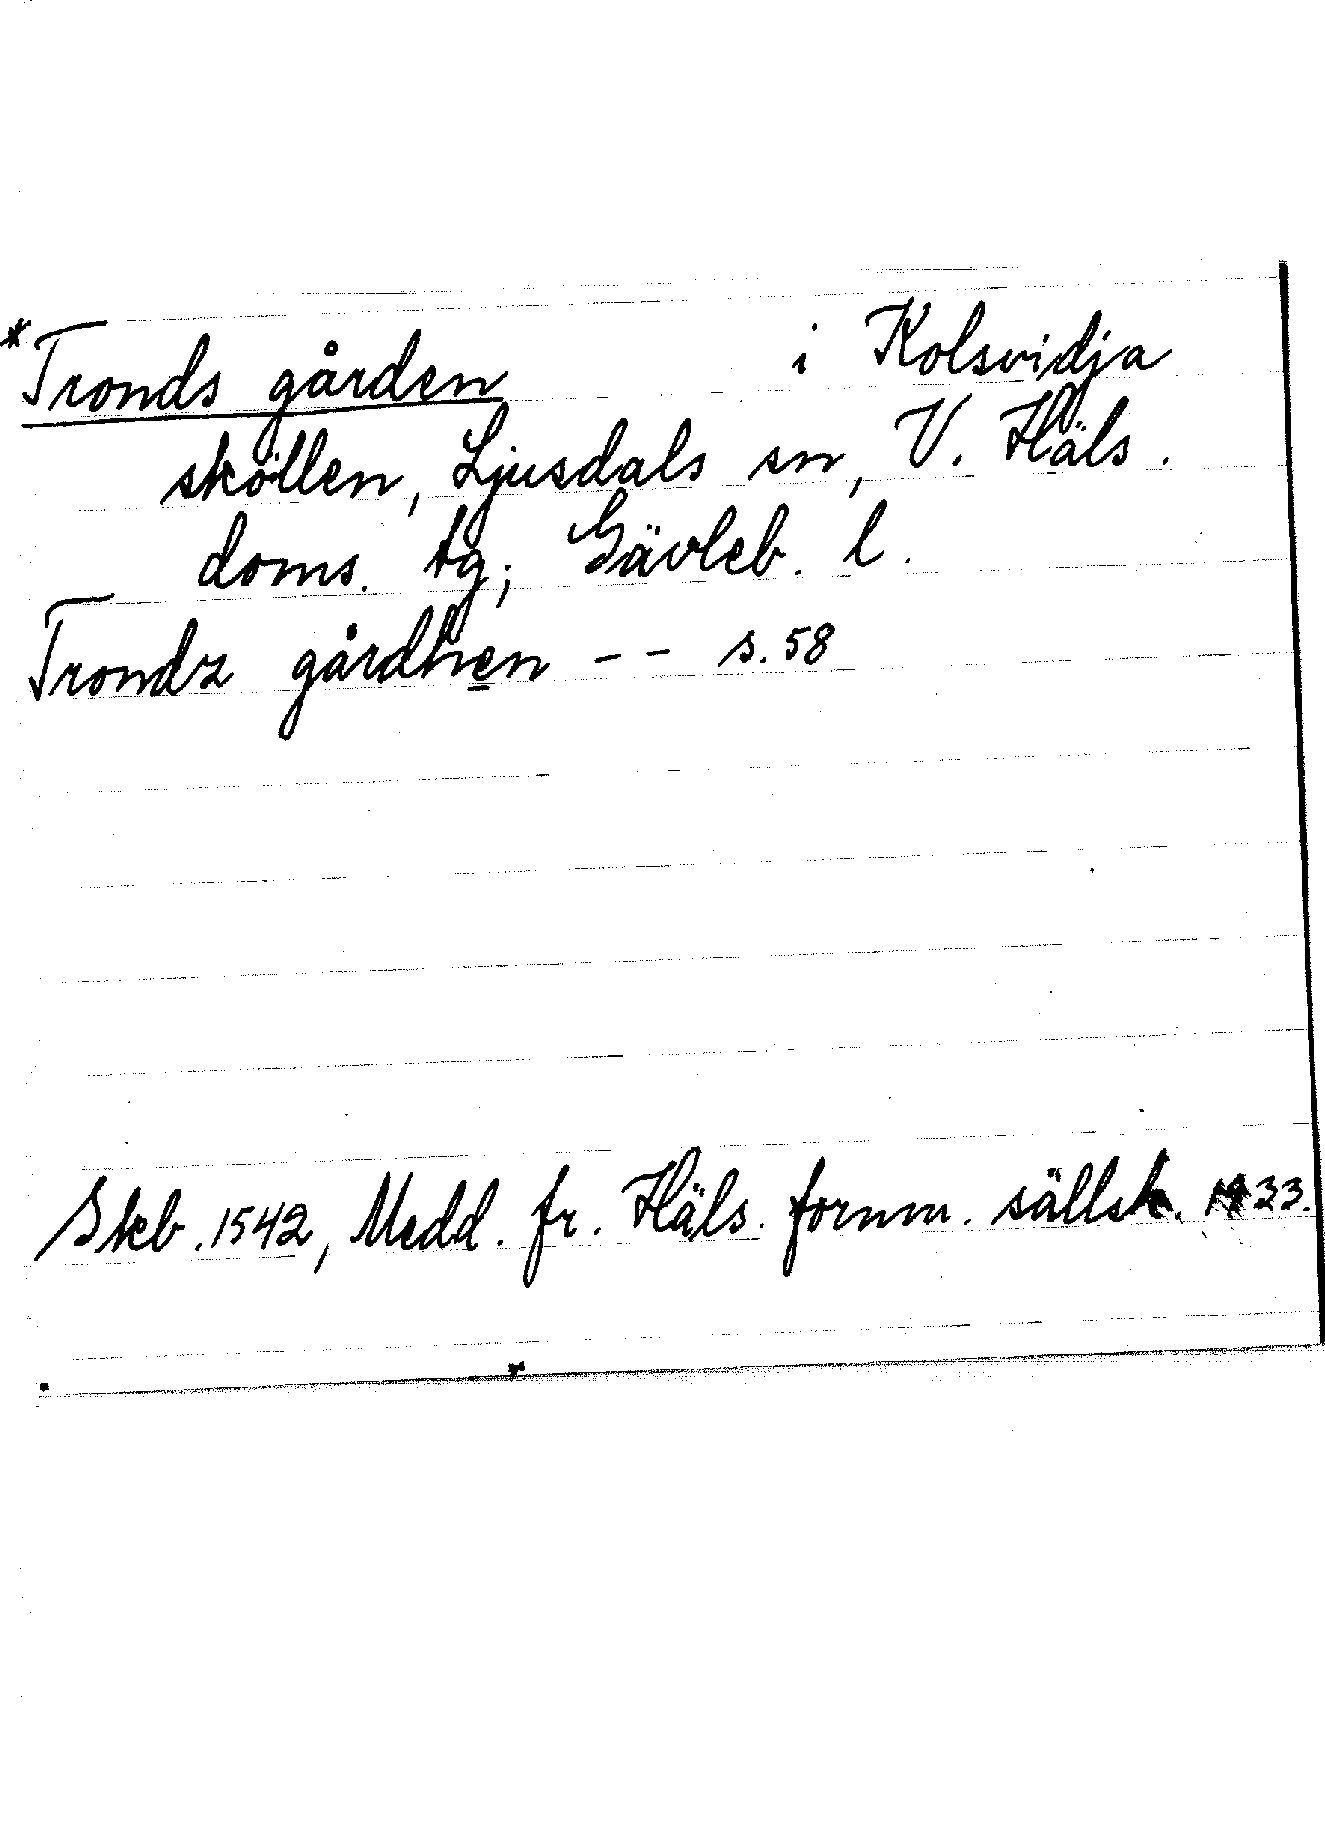 *Tronds gården i Kolsvidja
sköllen, Ljusdals sn, V. Häls.
doms. tg; Gävleb. l.
Trondz gårdhen -- s. 58
Skb. 1542, Medd. fr. Häls. fornm. sällsk. 1933.